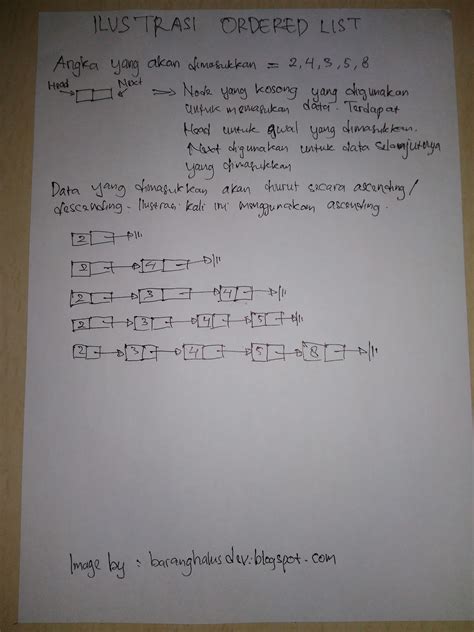 ILUSTRASI ORDERED LIST
Angka yang akan dimasukkan = 2, 4, 3, 5, 8
Head Next
Node yang kosong yang digunakan
untuk memasukan data. Terdapat
Head untuk awal yang dimasukkan.
Next digunakan untuk data selanjutnya
yang dimasukkan
Data yang dimasukkan akan diurut secara ascending/
descending. Ilustrasi kali ini menggunakan ascending.
2
2 4
2 3 4
2 3 4 5
2 3 4 5 8
Image by : baranghalusdev.blogspot.com